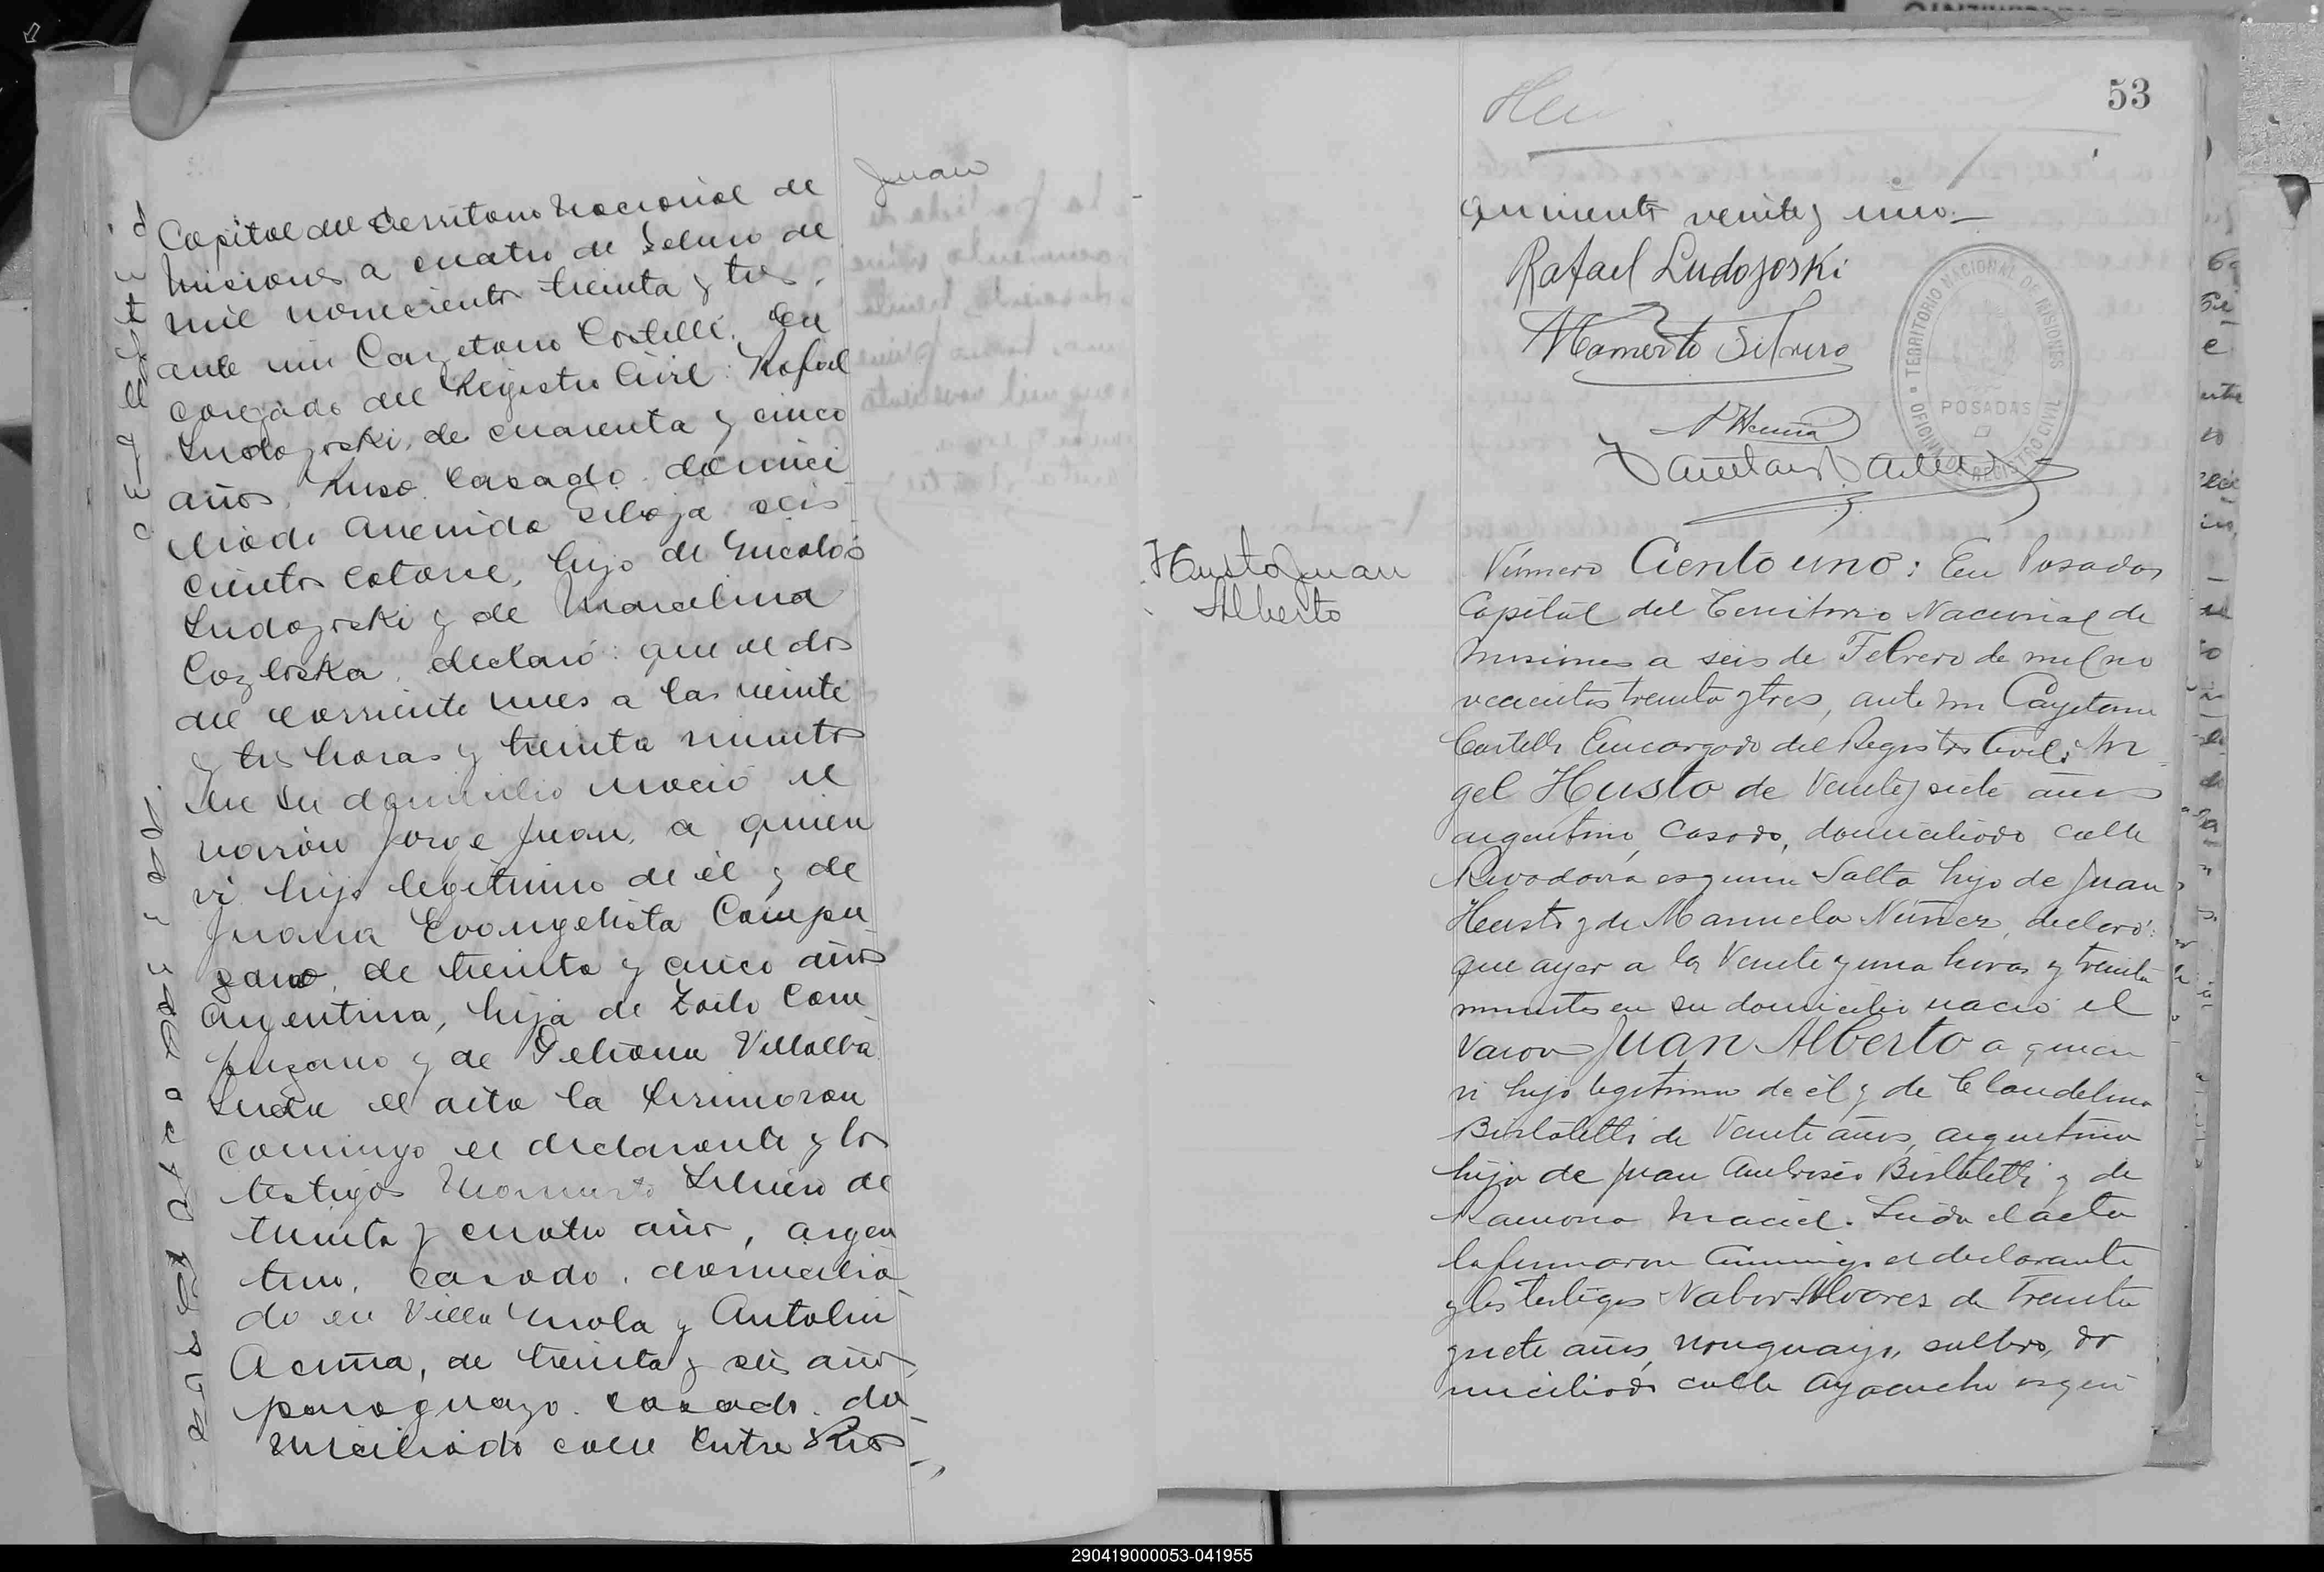 Juan
Capital del Territorio Nacional de
Misiones a cuatro de Febrero de
mil novecientos treinta y tres,
ante mi Cayetano Castelli, En
cargado del Registro Civil: Rafael
Ludozoski, de cuarenta y cinco
años, Ruso, casado, domici
liado Avenida Roja seis
cientos catorce, hijo de Nicolás
Ludozoski y de Marcelina
Cozloska, declaró: que el dos
del corriente mes a las veinte
y tres horas y treinta minutos
en su domicilio nació el
varón Jorge Juan, a quien
vi hijo legítimo de él y de
Juana Evangelista Campu
zano, de treinta y cinco años
Argentina, hija de Zoilo Cam
puzano y de Feliciana Villalba
Leida el acta la firmaron
conmigo el declarante y los
testigos Mamerto Silvero de
treinta y cuatro años, argen
tino, casado, domicilia
do en Villa Urola y Antolin
Acuña, de treinta y seis años
paraguayo, casado, do
miciliado calle Entre Rios
53
quinientos veinte y uno.—
Rafael Ludozoski
Mamerto Silvero
A Acuña
TERRITORIO NACIONAL DE MISIONES
POSADAS
OFICINA REGISTRO CIVIL
Husto Juan
Alberto
Número Ciento uno: En Posadas
Capital del Territorio Nacional de
Misiones a seis de Febrero de mil no
vecientos treinta y tres, ante mi Cayetano
Castelli Encargado del Registro Civil: An
gel Husto de Veinte y siete años
argentino, casado, domiciliado calle
Rivadavia esquina Salta hijo de Juan
Husto y de Manuela Núñez, declaró:
que ayer a las Veinte y una horas y treinta
minutos en su domicilio nació el
Varon Juan Alberto a quien
vi hijo legitimo de él y de Claudelina
Bislatelli de Veinte años, argentina
hija de Juan Ambrosio Bislatelli y de
Ramona Maciel. Leida el acta
la firmaron conmigo el declarante
y los testigos Nabor Alvarez de treinta
y siete años, uruguayo, soltero, do
miciliado calle Ayacucho esqui
290419000053-041955